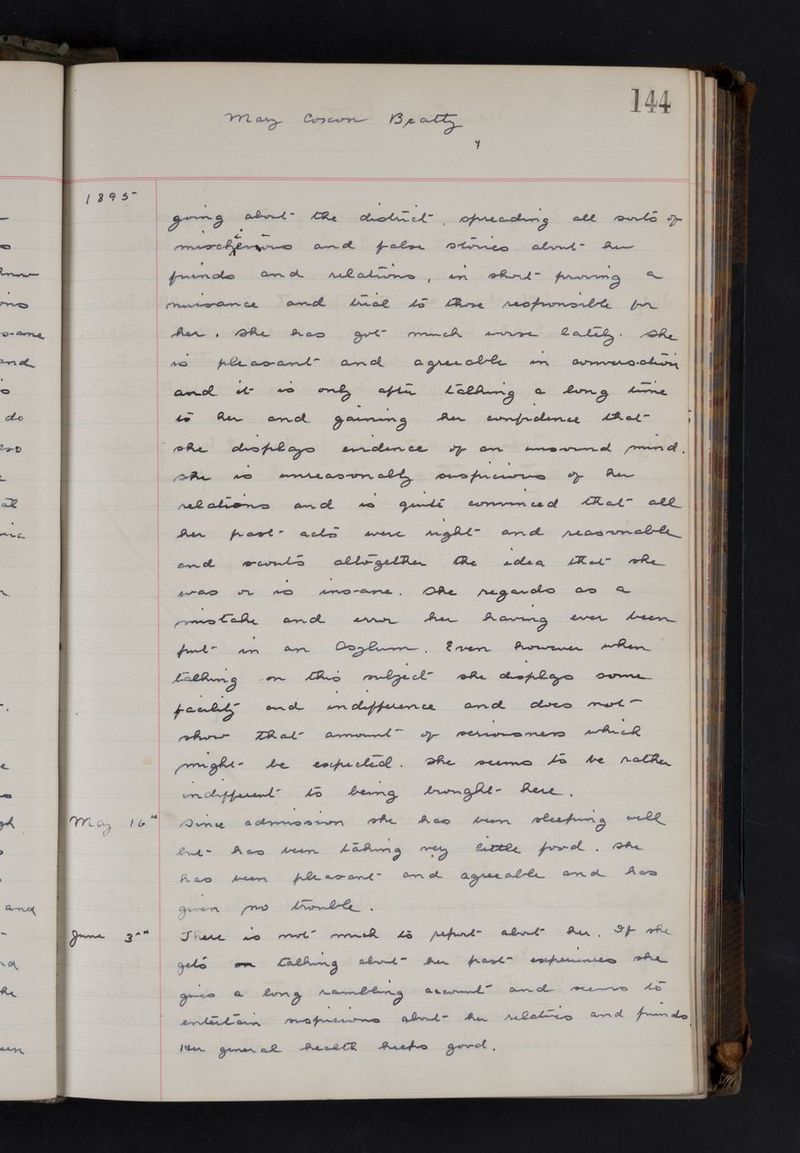 144
Mary Coscon Beatty
1895
going about the district, spreading all sorts of
mischievous and false stories about her
friends and relations, in short proving a
nuisance and trial to those responsible for
her. She has got much worse lately. She
is pleasant and agreeable in conversation
and it is only after talking a long time
to her and gaining her confidence that
she displays evidence of an unsound mind.
She is unreasonably suspicious of her
relations and is quite convinced that all
her past acts were right and reasonable
and scouts altogether the idea that she
was or is insane. She regards as a
mistake and error her having ever been
put in an Asylum. Even however when
talking on this subject she displays some
facility and indifference and does not
show that amount of seriousness which
might be expected. She seems to be rather
indifferent to being brought here.
May 16th Since admission she has been sleeping well
but has been taking very little food. She
has been pleasant and agreeable and has
given no trouble.
June 3rd There is not much to report about her. If she
gets on talking about her past experiences she
gives a long rambling account and seems to
entertain suspicions about her relatives and friends.
Her general health keeps good.